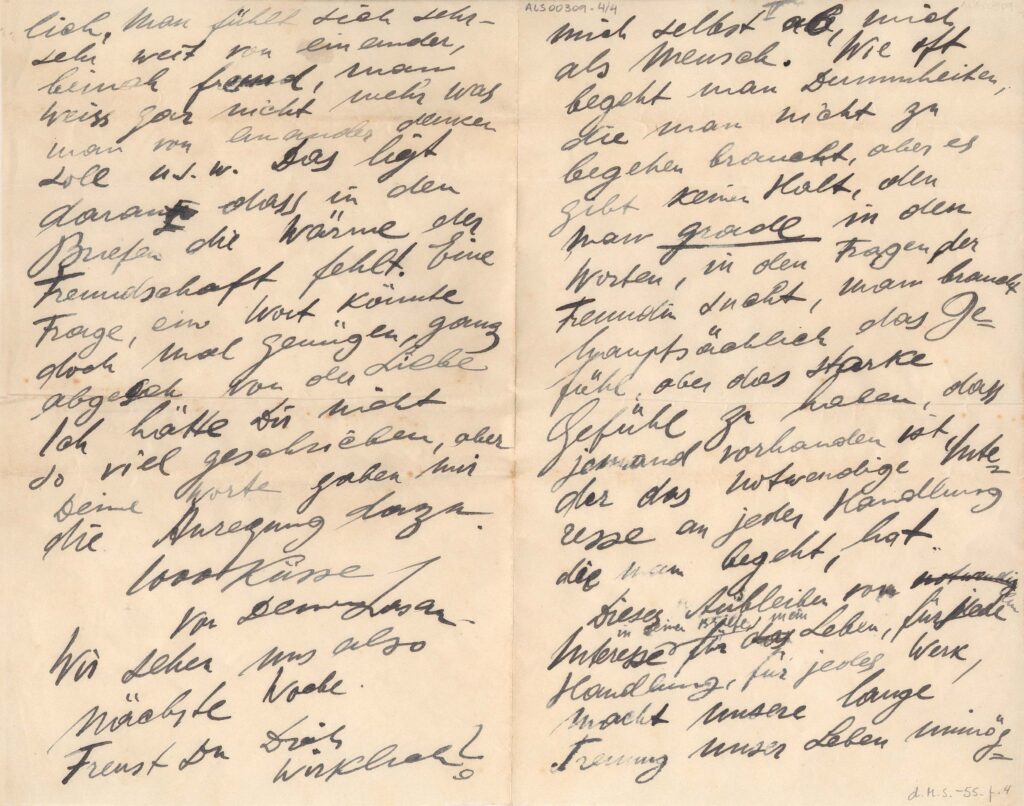 ALS00309-4/4
IV
mich selbst ab, mich
als Mensch. Wie oft
begeht man Dummheiten,
die man nicht zu
begehen braucht, aber es
gibt keinen Halt, den
man grade in den
Worten, in den Fragen der
Freundin sucht, man braucht
hauptsächlich das Ge=
fühl, aber das starke
Gefühl zu haben, dass
jemand vorhanden ist,
der das notwendige Inte=
resse an jeder Handlung
die man begeht, hat.
Dieses Ausbleiben vom notwendigen
in deinen Briefen mein
Interesse für das Leben, für jede
Handlung, für jedes Werk,
macht unsere lange
Trennung unser Leben unmög=
d.M.S.-55.f.4
lich. Man fühlt sich sehr-
sehr weit von einander,
beinah fremd, man
weiss gar nicht mehr was
man von einander denken
soll u.s.w. Das ligt
daran dass in den
Briefen die Wärme der
Freundschaft fehlt. Eine
Frage, ein Wort könnte
doch mal genügen, ganz
abgesehn von der Liebe
Ich hätte Dir nicht
so viel geschrieben, aber
Deine Worte gaben mir
die Anregung dazu.
1000 Küsse
von
Wir sehen uns also
nächste Woche.
Freust Du Dich
wirklich?